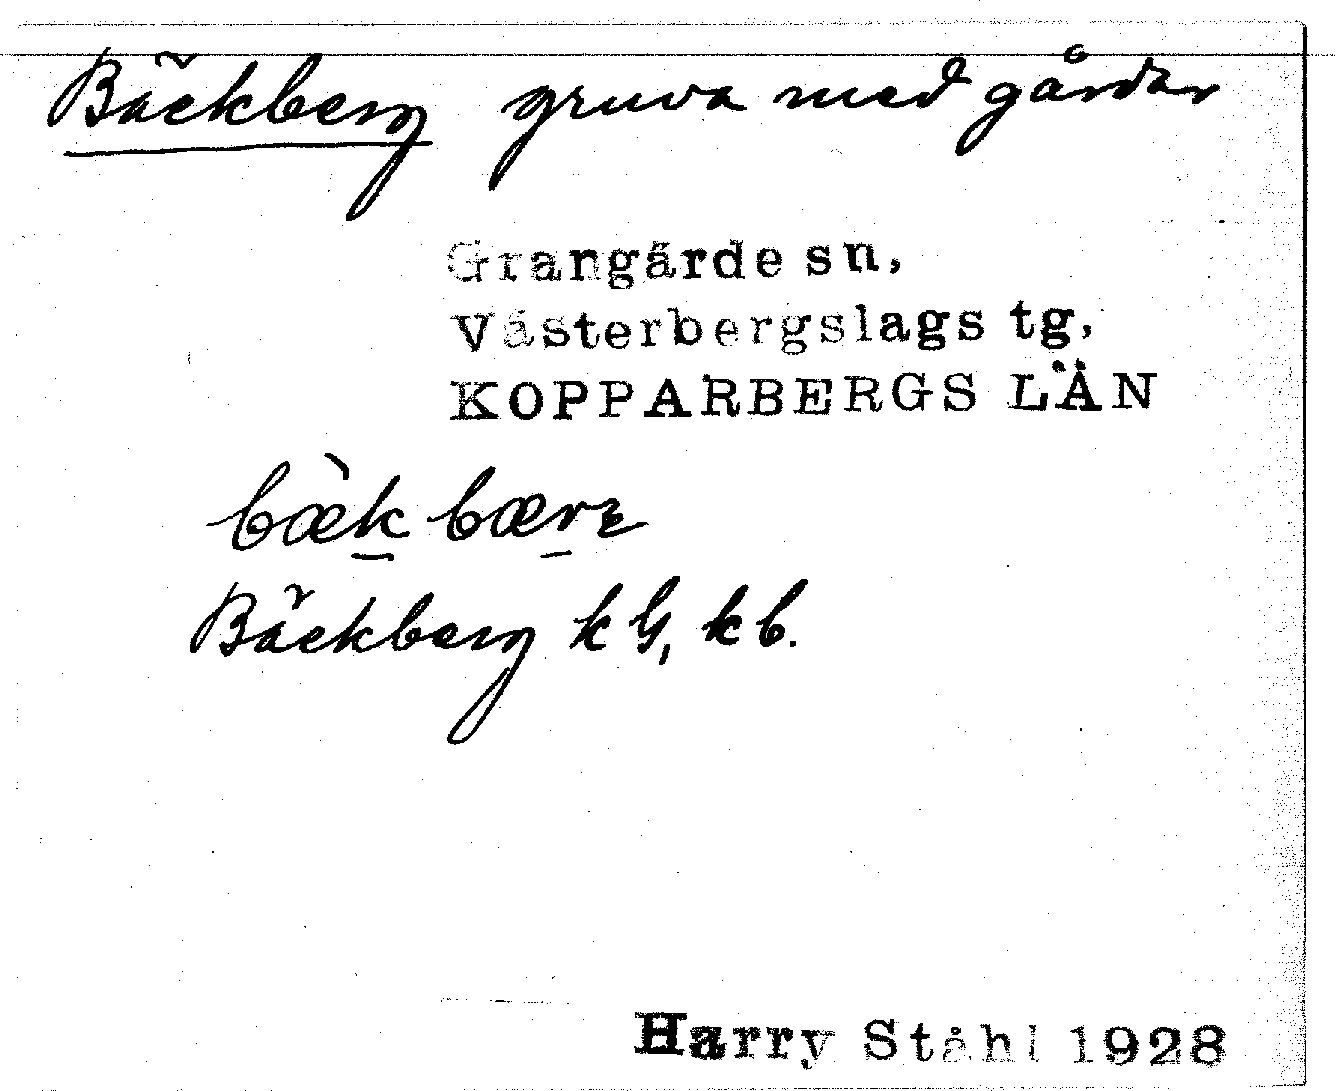 Bäckberg gruva med gårdar
Grangärde sn,
Västerbergslags tg,
KOPPARBERGS LÄN
bæ̀k bærɛ
Bäckberg kG, kb.
Harry Ståhl 1928